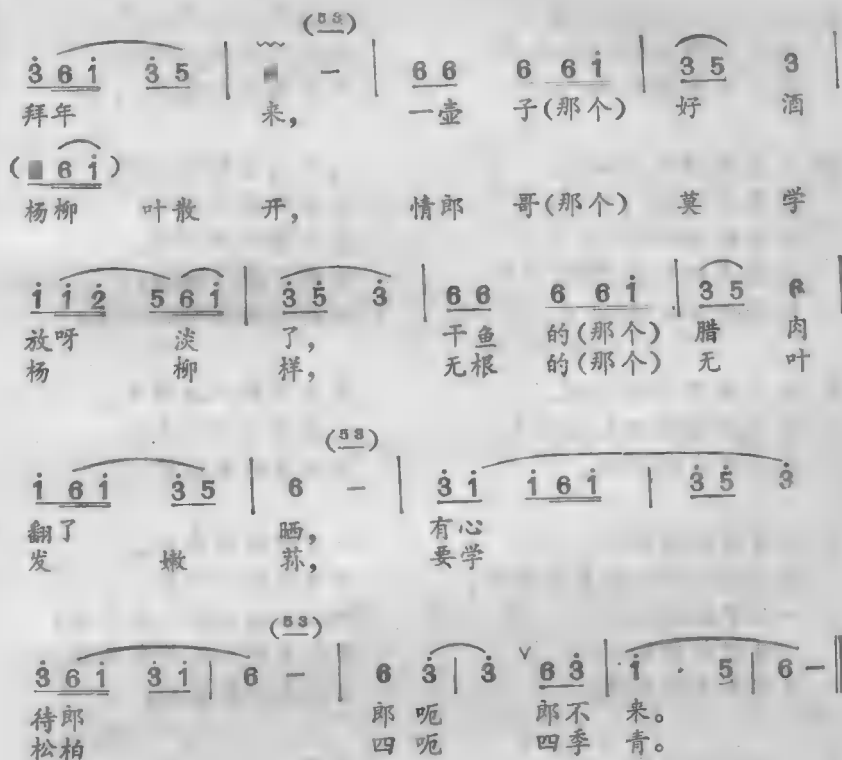 (5 3)
3̇ 6 i̇ 3̇ 5 | – | 6 6 6 6 i̇ | 3 5 3 |
拜年 来， 一壶 子(那个) 好 酒
( 6 i̇)
杨柳 叶散 开， 情郎 哥(那个) 莫 学
i̇ i̇ 2̇ 5 6 i̇ | 3̇ 5̇ 3̇ | 6 6 6 6 i̇ | 3 5 |
放呀 淡 了， 干鱼 的(那个) 腊 肉
杨 柳 样， 无根 的(那个) 无 叶
(5 3)
i̇ 6 i̇ 3̇ 5 | 6 – | 3̇ i̇ i̇ 6 i̇ | 3̇ 5̇ 3̇
翻了 晒， 有心
发 嫩 荪， 要学
(5 3)
3̇ 6 i̇ 3̇ i̇ | 6 – | 6 3̇ | 3̇ ∨ 6 3̇ | i̇ · 5 | 6 – ‖
待郎 郎 呃 郎不 来。
松柏 四 呃 四季 青。